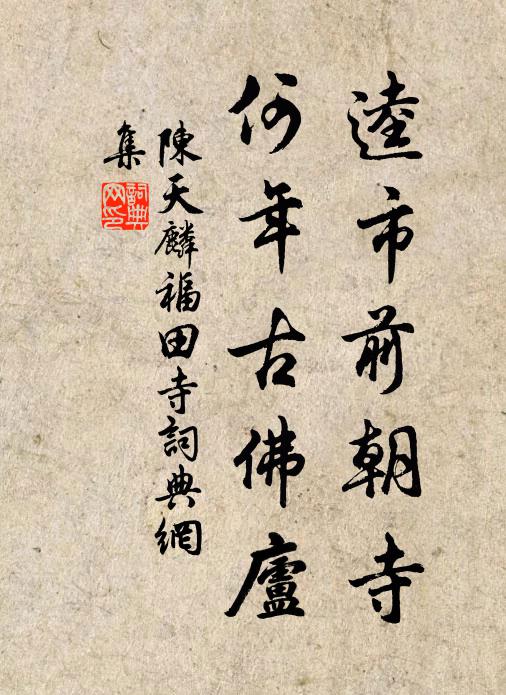 逵市前朝寺
何年古佛廬
陳天麟福田寺詞典網
集
詞典網印